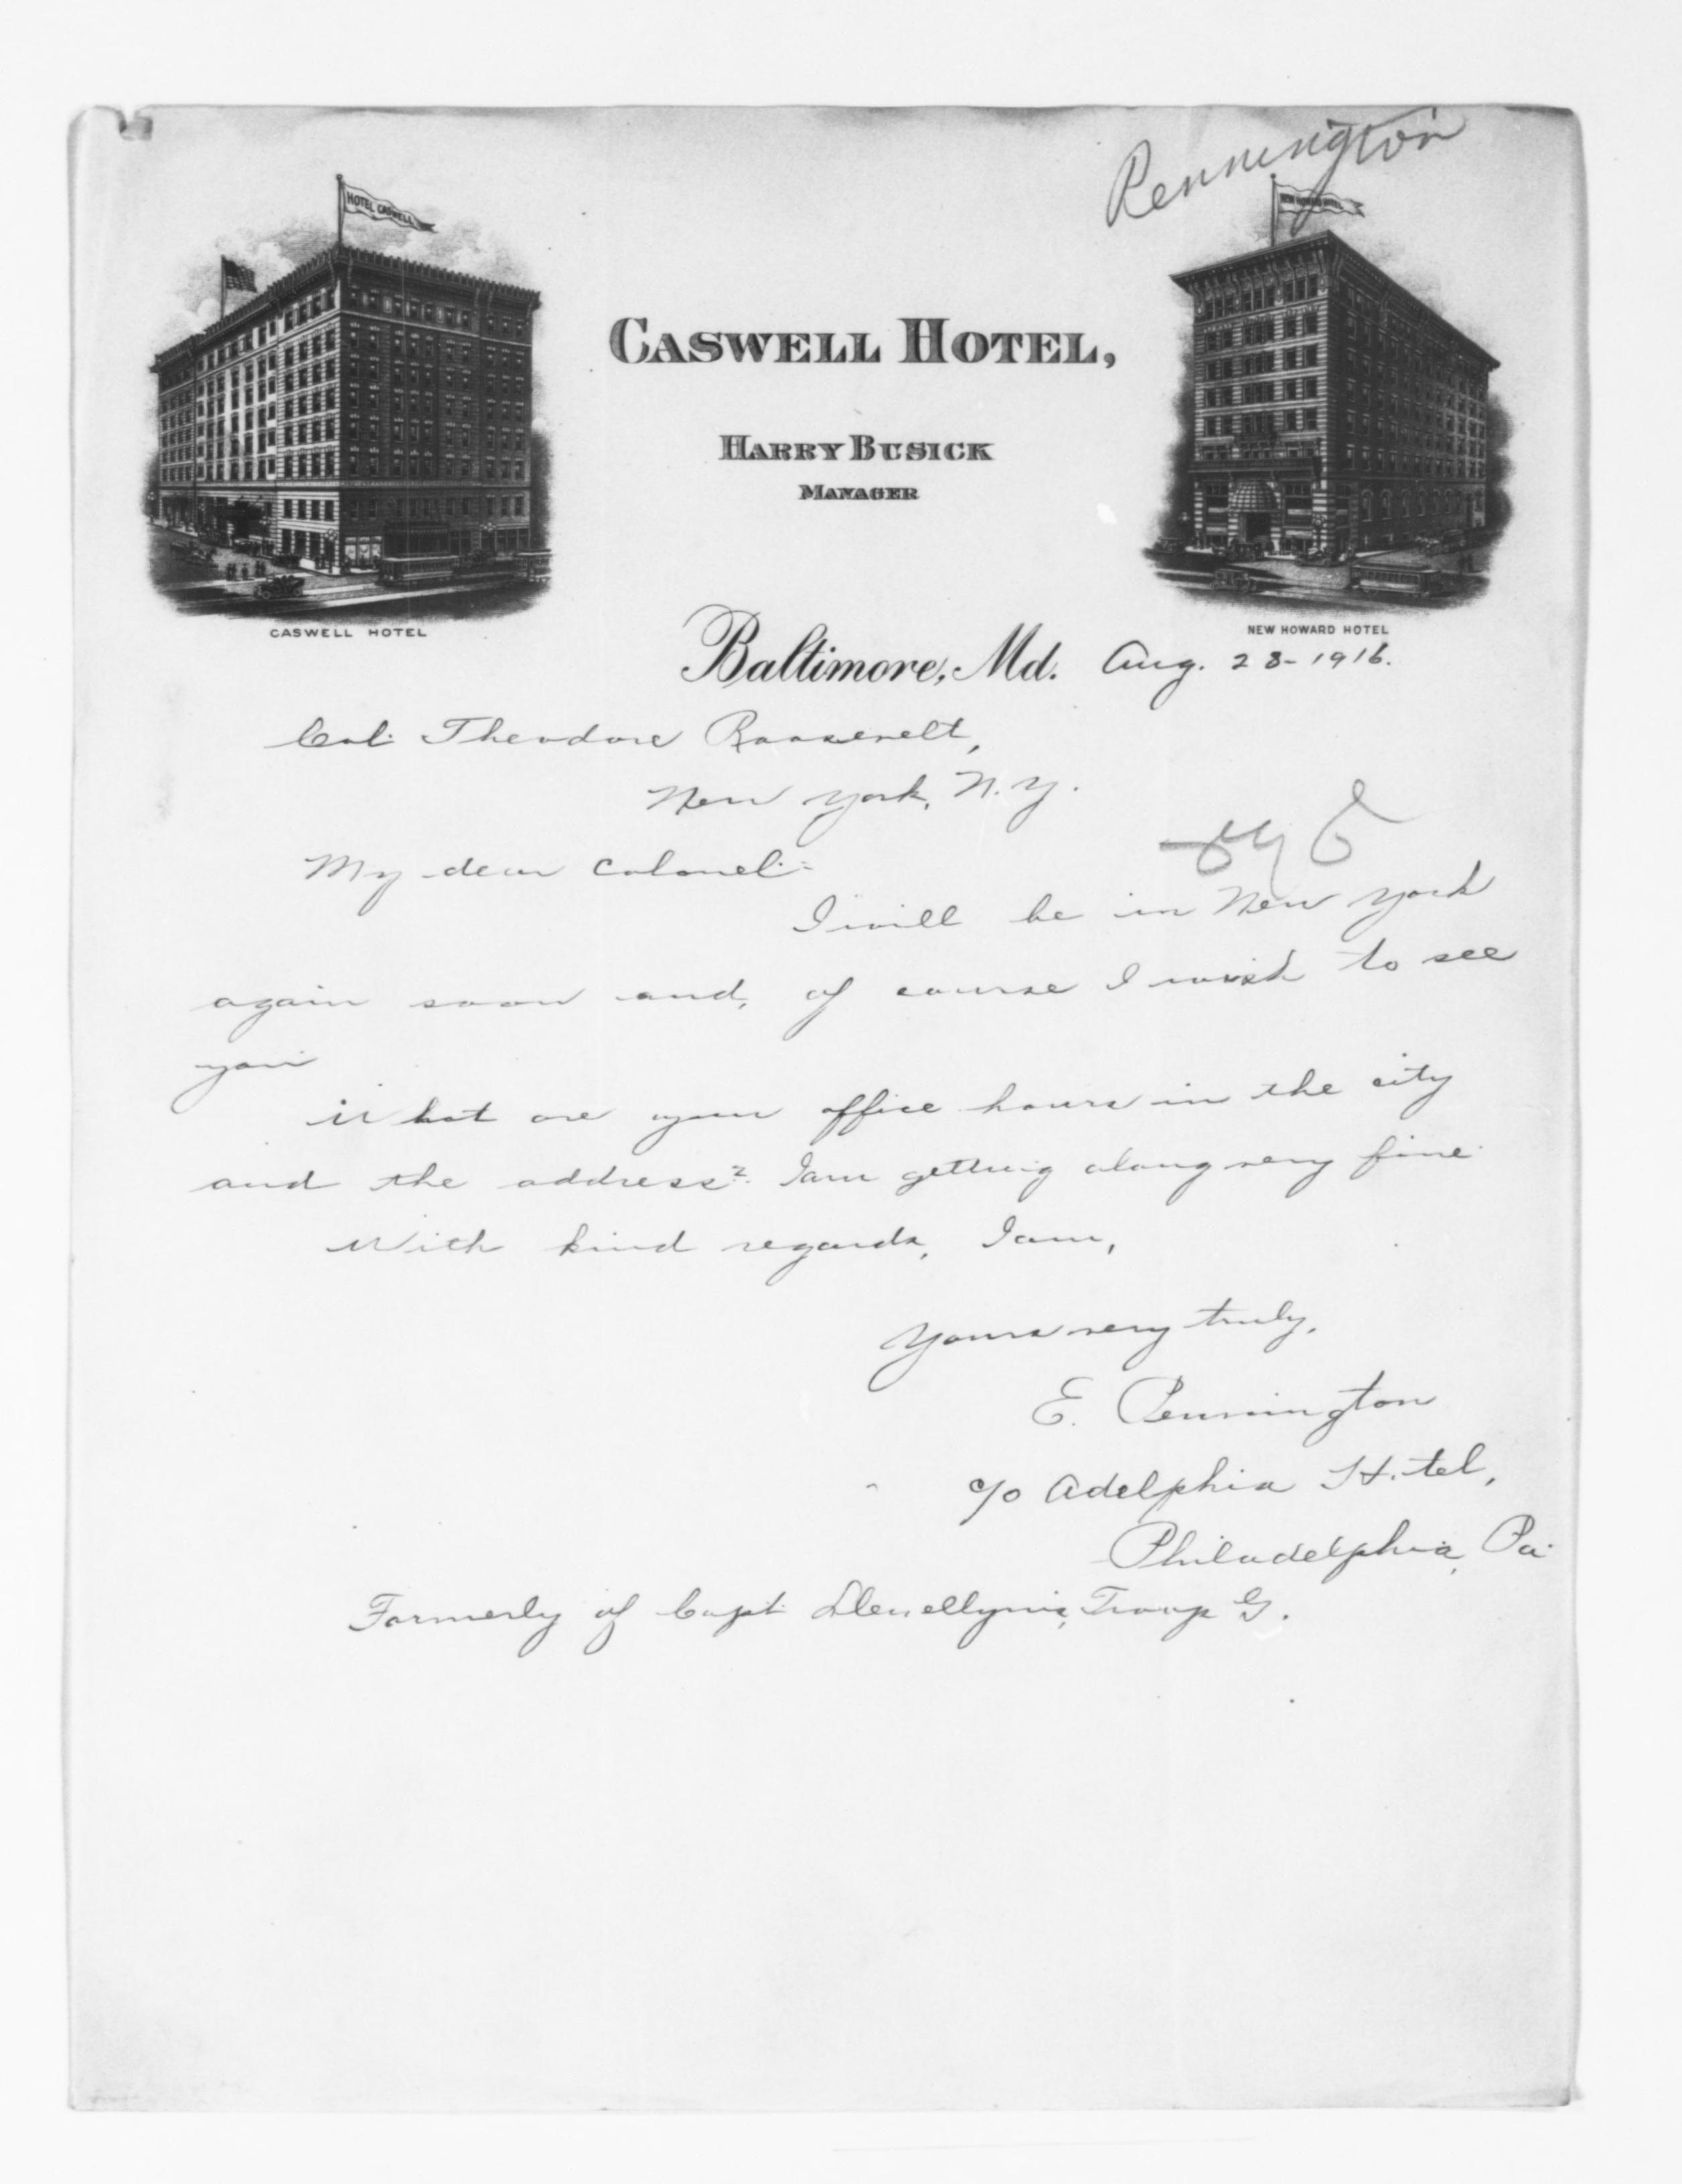 Pennington
HOTEL CASWELL
CASWELL HOTEL,
HARRY BUSICK
MANAGER
CASWELL HOTEL
NEW HOWARD HOTEL
Baltimore, Md. Aug. 28-1916.
Col. Theodore Roosevelt,
New York, N.Y.
My dear Colonel:-
I will be in New York
again soon and, of course I wish to see
you
What are your office hours in the city
and the address? I am getting along very fine.
With kind regards, I am,
Yours very truly,
E. Pennington
c/o Adelphia Hotel,
Philadelphia, Pa.
Formerly of Capt Llewellyn's, Troop G.